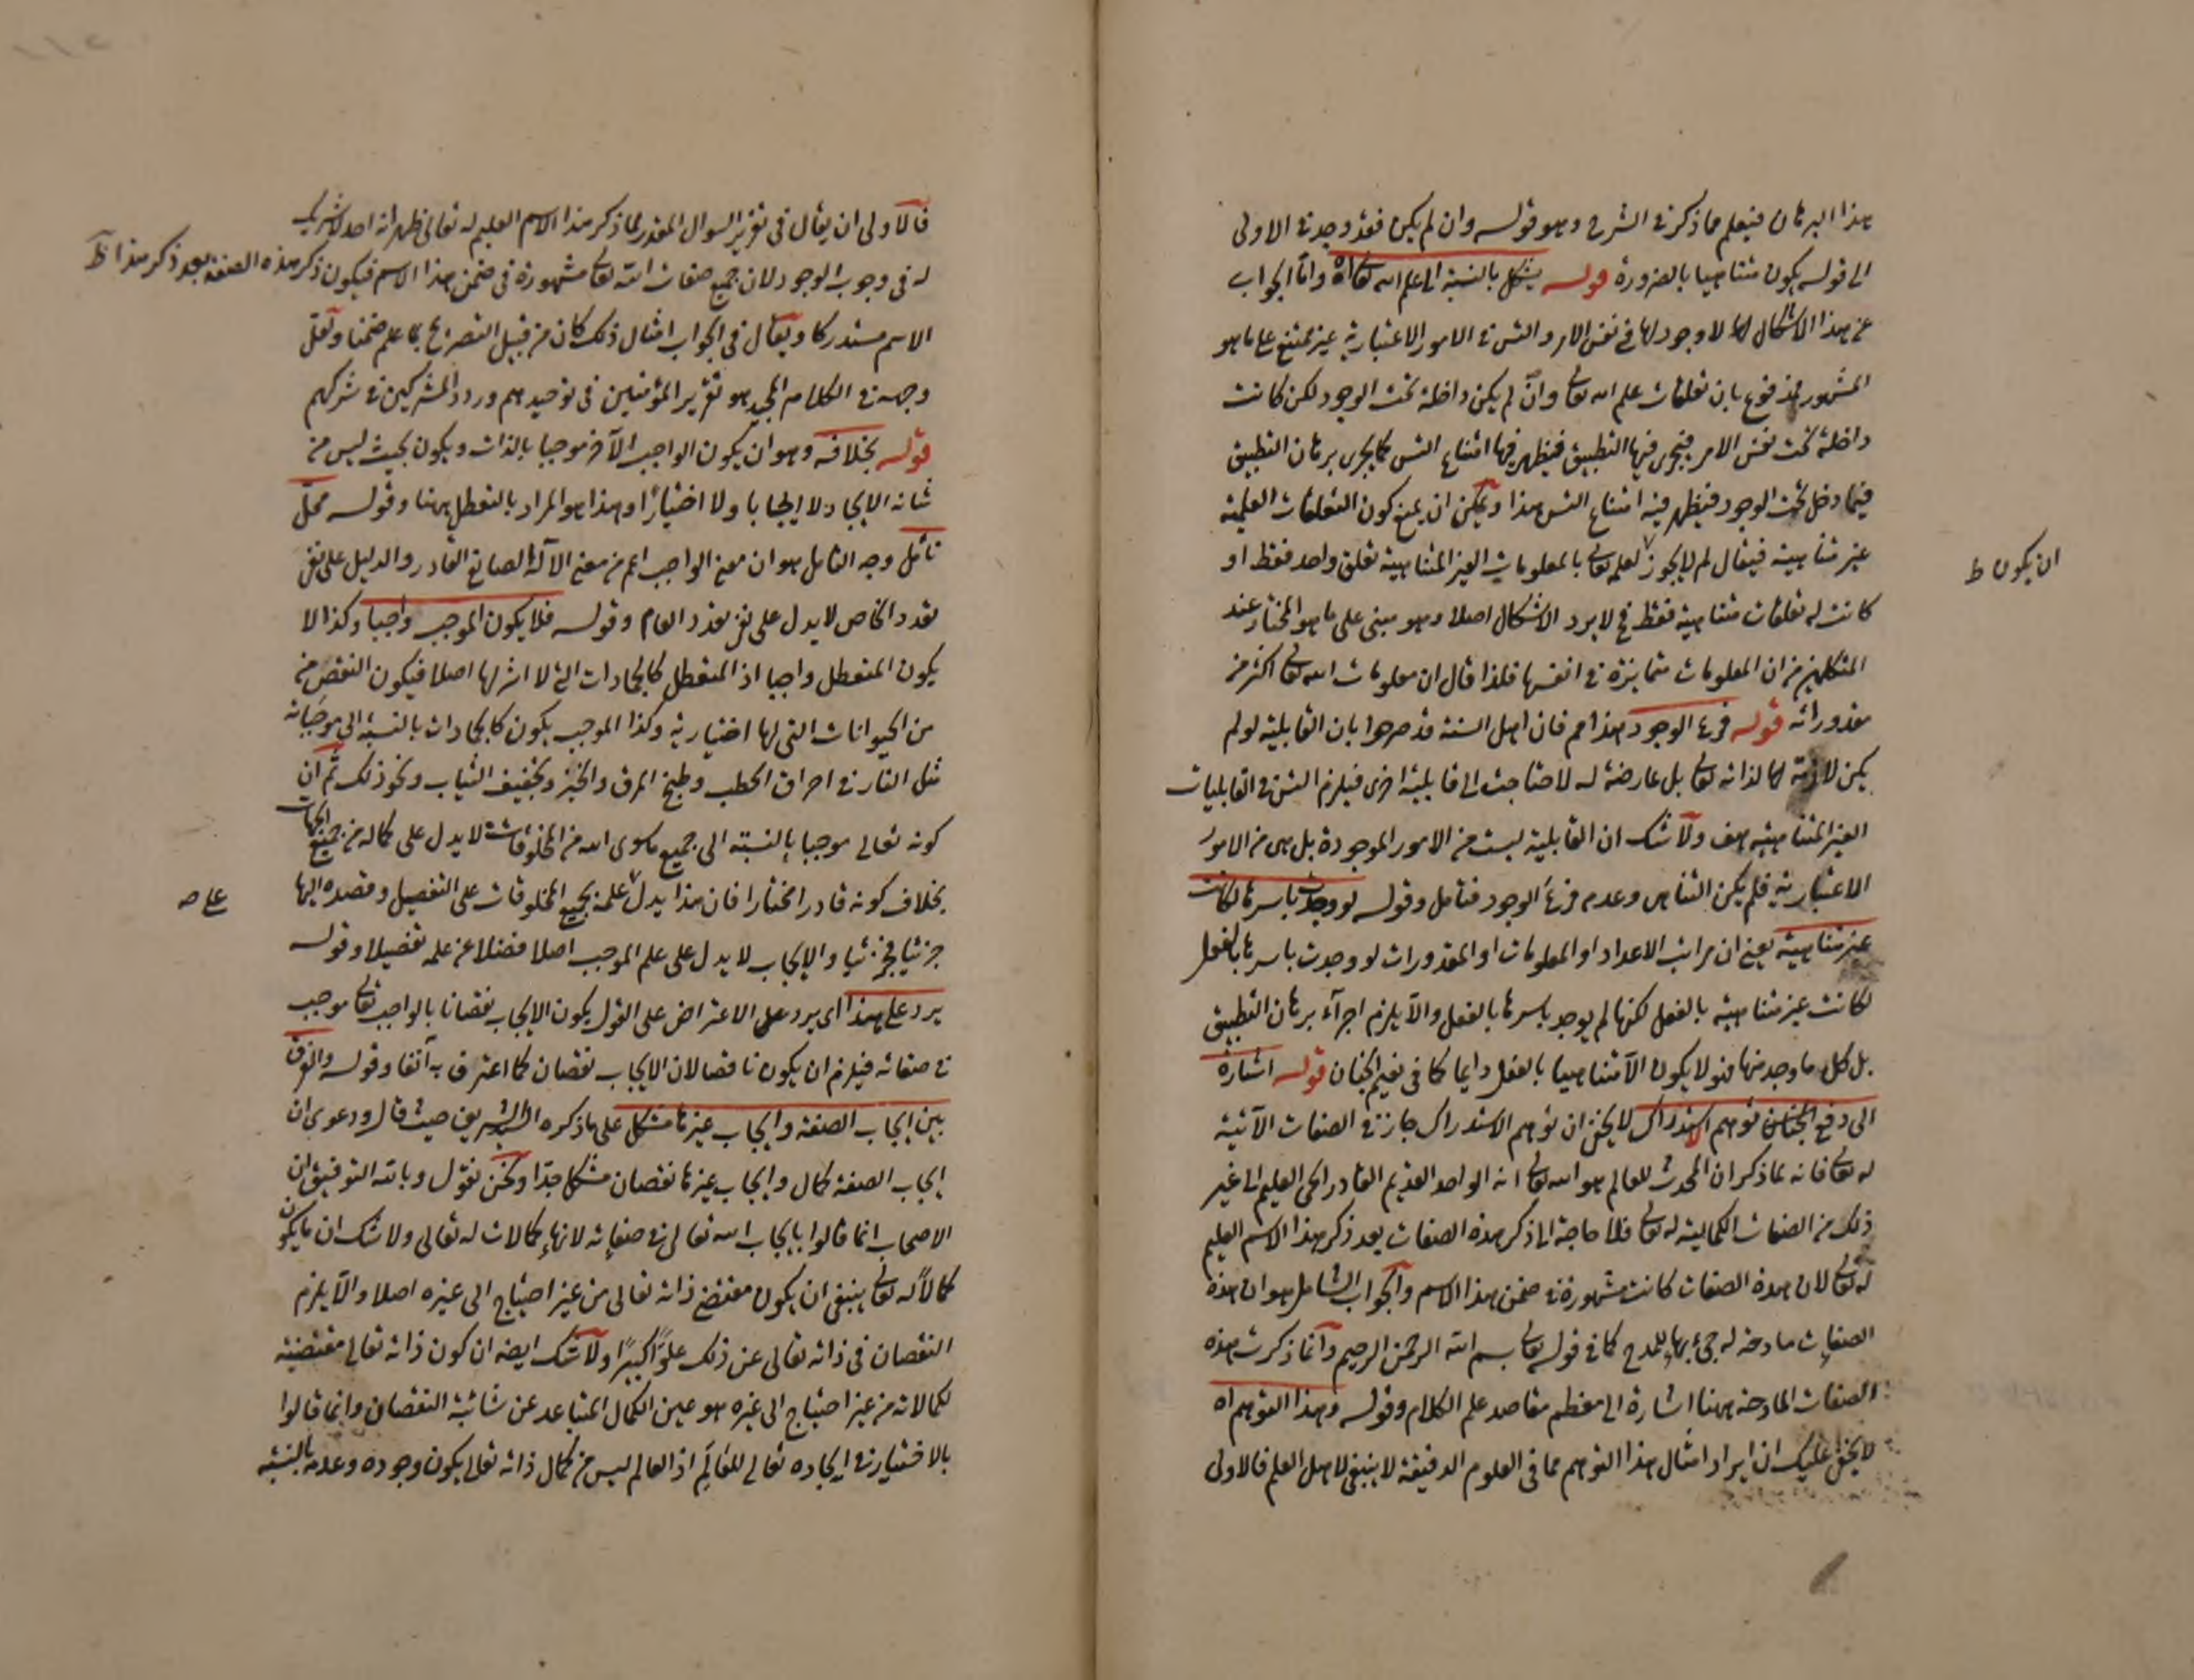 هذا البرهان فيعلم مما ذكر في الشرح وهو قوله وان لم يكن فقد وجد في الاولى
الى قوله يكون متناهيا بالضرورة قوله يشكل بالنسبة الى علم الله تعالى اه واما الجواب
عن هذا الاشكال لا وجود لها في نفس الامر والتس في الامور الاعتبارية غير ممتنع على ما هو
المشهور فمدفوع بان تعلقات علم الله تعالى وان لم يكن داخلة تحت الوجود لكن كانت
داخلة تحت نفس الامر فيجرى فيها التطبيق فيظهر فيها امتناع التس كما يجرى برهان التطبيق
فيما دخل تحت الوجود فيظهر فيه امتناع التس هذا ويمكن ان يمنع كون التعلقات العلمية
غير متناهية فيقال لم لا يجوز لعلمه تعالى بالمعلومات الغير المتناهية تعلق واحد فقط او
ان يكون ط
كانت له تعلقات متناهية فقط فح لا يرد الاشكال اصلا وهو مبنى على ما هو المختار عند
المتكلمين من ان المعلومات متمايزة في انفسها فلذا قال ان معلومات الله تعالى اكثر من
مقدوراته قوله فرع الوجود هذا مم فان اهل السنة قد صرحوا بان القابلية لو لم
يكن لازمة لذاته تعالى بل عارضة له لاحتاجت الى قابلية اخرى فيلزم التس في القابليات
الغير المتناهية هف ولا شك ان القابلية ليست من الامور الموجودة بل هى من الامور
الاعتبارية فلم يكن التناهى وعدمه فرع الوجود فتأمل وقوله لو وجدت باسرها لكانت
غير متناهية يعنى ان مراتب الاعداد او المعلومات او المقدورات لو وجدت باسرها بالفعل
لكانت غير متناهية بالفعل لكنها لم يوجد باسرها بالفعل والا يلزم اجراء برهان التطبيق
بل كل ما وجد منها فهو لا يكون الا متناهيا بالفعل دايما كما في نعيم الجنان قوله اشارة
الى دفع توهم الاستدراك لا يخفى ان توهم الاستدراك جاز في الصفات الآتية
له تعالى فانه لما ذكر ان المحدث للعالم هو الله تعالى انه الواحد القديم القادر الحى العليم الى غير
ذلك من الصفات الكمالية له تعالى فلا حاجة الى ذكر هذه الصفات بعد ذكر هذا الاسم العليم
له تعالى لان هذه الصفات كانت مشهورة في ضمن هذا الاسم والجواب الشامل هو ان هذه
الصفات مادحة له جئ بها للمدح كما في قوله تعالى بسم الله الرحمن الرحيم وانما ذكرت هذه
الصفات المادحة ههنا اشارة الى معظم مقاصد علم الكلام وقوله وهذا التوهم اه
لا يخفى عليك ان ايراد امثال هذا التوهم مما في العلوم الدقيقة لا ينبغى لاهل العلم فالاولى
فالاولى ان يقال في تقرير السوال المقدر لما ذكر هذا الاسم العليم له تعالى ظهر انه احد لا شريك
له في وجوب الوجود لان جميع صفات الله تعالى مشهورة في ضمن هذا الاسم فيكون ذكر هذه الصفة بعد ذكر هذا
الاسم مستدركا ويقال في الجواب امثال ذلك كان من قبيل التصريح بما علم ضمنا ولعل
وجهه في الكلام المجيد هو تقرير المؤمنين في توحيدهم ورد المشركين في شركهم
قوله بخلافه وهو ان يكون الواجب الآخر موجبا بالذات ويكون بحيث ليس من
شانه الايجاد لا ايجابا ولا اختيارا وهذا هو المراد بالتعطل ههنا وقوله محل
تأمل وجه التامل هو ان معنى الواجب اعم من معنى الاله الصانع القادر والدليل على نفى
تعدد الخاص لا يدل على نفى تعدد العام وقوله فلا يكون الموجب واجبا وكذا لا
يكون المتعطل واجبا اذ المتعطل كالجمادات التى لا اثر لها اصلا فيكون انقص من
من الحيوانات التى لها اختيارية وكذا الموجب يكون كالجمادات بالنسبة الى موجباته
مثل النار في احراق الحطب وطبخ المرق والخبز وتجفيف الثياب ونحو ذلك ثم ان
كونه تعالى موجبا بالنسبة الى جميع ما سوى الله من المخلوقات لا يدل على كماله من جميع الجهات
بخلاف كونه قادرا مختارا فان هذا يدل علمه بجميع المخلوقات على التفصيل وقصده اليها
على صح
جزئيا فجزئيا والايجاب لا يدل على علم الموجب اصلا فضلا عن علمه تفصيلا وقوله
يرد على هذا اى يرد على الاعتراض على القول بكون الايجاب نقصانا بالواجب تعالى موجب
في صفاته فيلزم ان يكون ناقصا لان الايجاب نقصان كما اعترف به آنفا وقوله والفرق
بين ايجاب الصفة وايجاب غيرها مشكل على ما ذكره الشريف حيث قال ودعوى ان
ايجاب الصفة كمال وايجاب غيرها نقصان مشكل جدا ونحن نقول وبالله التوفيق ان
الاصحاب انما قالوا بايجاب الله تعالى في صفاته لانها كمالات له تعالى ولا شك ان ما يكون
كمالا له تعالى ينبغى ان يكون مقتضى ذاته تعالى من غير احتياج الى غيره اصلا والا يلزم
النقصان في ذاته تعالى عن ذلك علوا كبيرا ولا شك ايضه ان كون ذاته تعالى مقتضية
لكمالاته من غير احتياج الى غيره هو عين الكمال المتباعد عن شائبة النقصان وانما قالوا
بالاختيار في ايجاده تعالى للعالم اذ العالم ليس من كمال ذاته تعالى يكون وجوده وعدمه بالنسبة